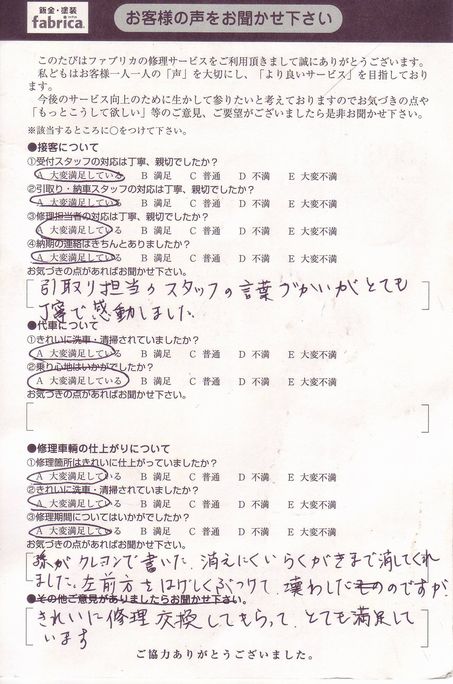 鈑金・塗装
fabrica.
お客様の声をお聞かせ下さい
このたびはファブリカの修理サービスをご利用頂きまして誠にありがとうございます。
私どもはお客様一人一人の「声」を大切にし、「より良いサービス」を目指しており
ます。
今後のサービス向上のために生かして参りたいと考えておりますのでお気づきの点や
「もっとこうして欲しい」等のご意見、ご要望がございましたら是非お聞かせ下さい。
※該当するところに○をつけて下さい。
●接客について
①受付スタッフの対応は丁寧、親切でしたか？
A 大変満足している B 満足 C 普通 D 不満 E 大変不満
②引取り・納車スタッフの対応は丁寧、親切でしたか？
A 大変満足している B 満足 C 普通 D 不満 E 大変不満
③修理担当者の対応は丁寧、親切でしたか？
A 大変満足している B 満足 C 普通 D 不満 E 大変不満
④納期の連絡はきちんとありましたか？
A 大変満足している B 満足 C 普通 D 不満 E 大変不満
お気づきの点があればお聞かせ下さい。
引取り担当のスタッフの言葉づかいがとても
丁寧で感動しました
●代車について
①きれいに洗車・清掃されていましたか？
A 大変満足している B 満足 C 普通 D 不満 E 大変不満
②乗り心地はいかがでしたか？
A 大変満足している B 満足 C 普通 D 不満 E 大変不満
お気づきの点があればお聞かせ下さい。
●修理車輌の仕上がりについて
①修理箇所はきれいに仕上がっていましたか？
A 大変満足している B 満足 C 普通 D 不満 E 大変不満
②きれいに洗車・清掃されていましたか？
A 大変満足している B 満足 C 普通 D 不満 E 大変不満
③修理期間についてはいかがでしたか？
A 大変満足している B 満足 C 普通 D 不満 E 大変不満
お気づきの点があればお聞かせ下さい。
孫がクレヨンで書いた、消えにくいらくがきまで消してくれ
ました。左前方をはげしくぶつけて、壊わしたものですが
●その他ご意見がありましたらお聞かせ下さい。
きれいに修理交換してもらって、とても満足して
います
ご協力ありがとうございました。